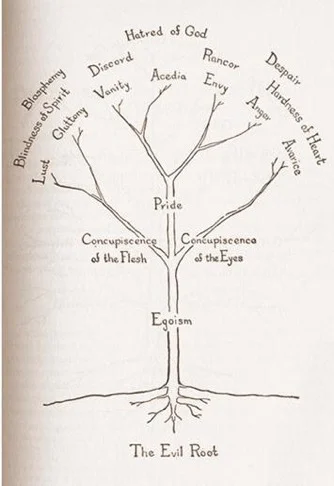 Hatred of God
Discord
Rancor
Despair
Blasphemy
Vanity
Acedia
Envy
Hardness of Heart
Blindness of Spirit
Gluttony
Anger
Lust
Avarice
Pride
Concupiscence
of the Flesh
Concupiscence
of the Eyes
Egoism
The Evil Root